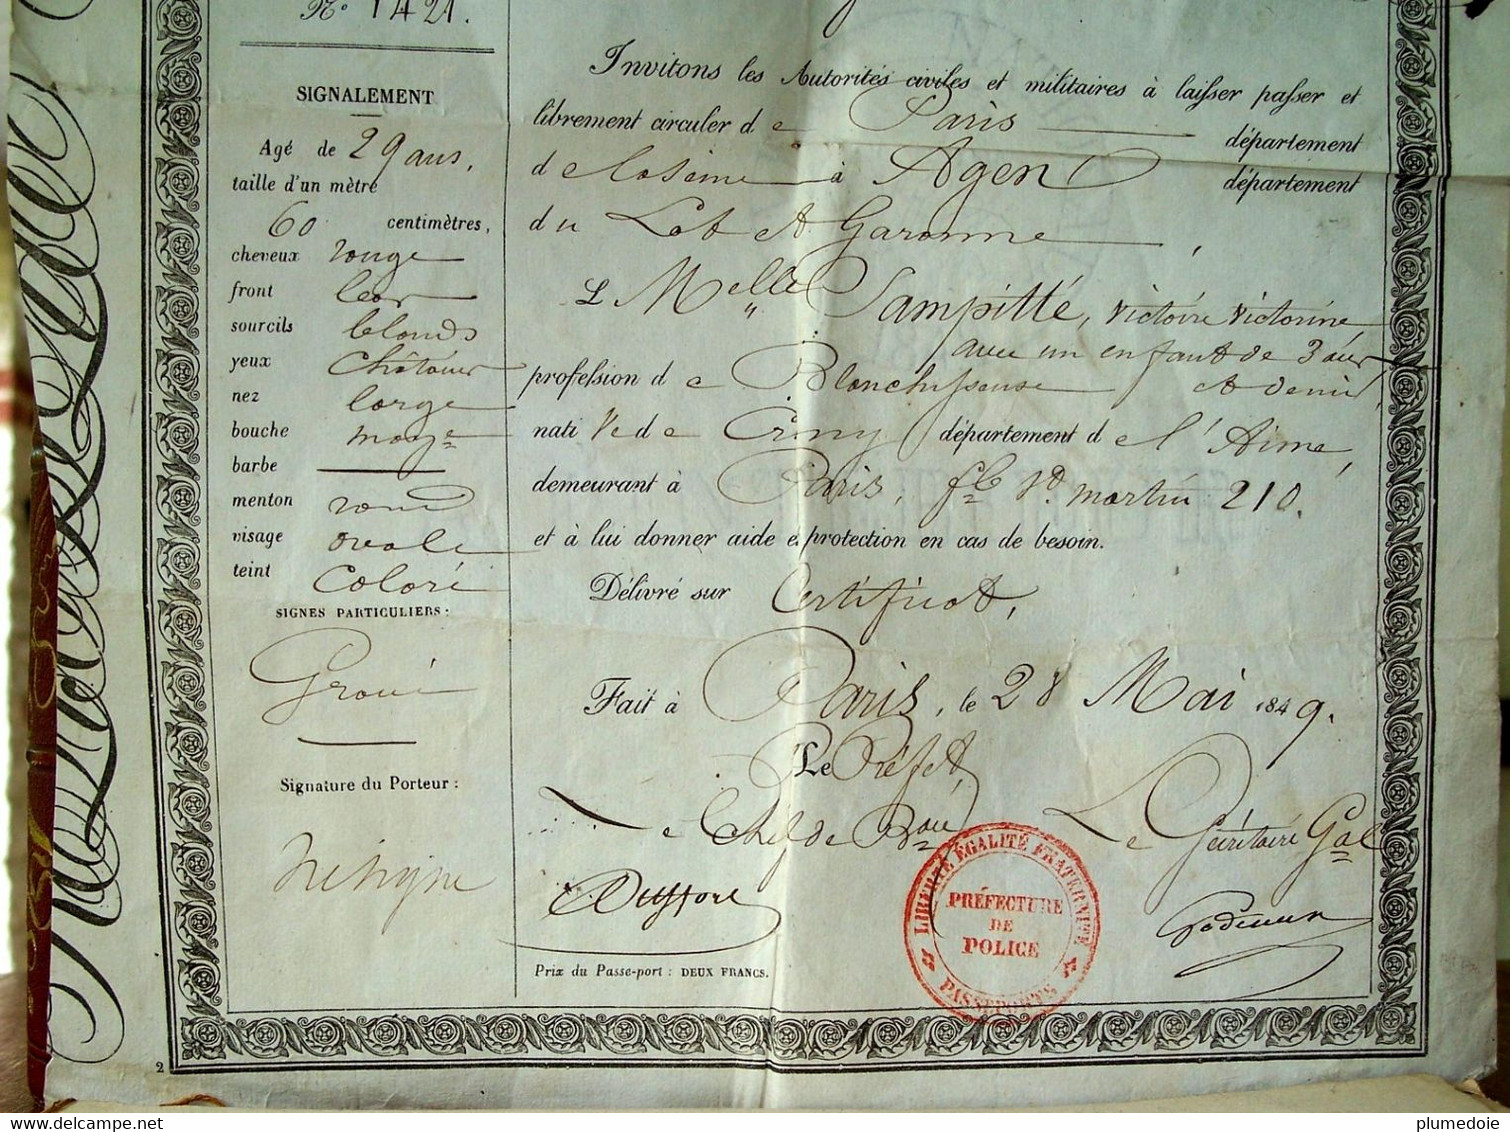 N° 1421.
SIGNALEMENT
Agé de 29 ans,
taille d'un mètre
60 centimètres,
cheveux rouge
front
sourcils blonds
yeux châtains
nez large
bouche moy.ne
barbe
menton rond
visage ovale
teint coloré
SIGNES PARTICULIERS :
Gravé
Signature du Porteur :
Ne signe
Invitons les Autorités civiles et militaires à laisser passer et
librement circuler de Paris département
de la Seine à Agen département
du Lot et Garonne,
L Melle Sampitté, Victoire Victorine,
avec un enfant de 3 ans
profession de Blanchisseuse et demi,
native de Crny département de l'Aisne,
demeurant à Paris, fg St. martin 210.
et à lui donner aide et protection en cas de besoin.
Délivré sur Certificat,
Fait à Paris, le 28 Mai 1849.
Le Préfet,
Le Chef de Bau Le Secrétaire Gal
Prix du Passe-port : DEUX FRANCS.
LIBERTÉ ÉGALITÉ FRATERNITÉ
PRÉFECTURE
DE
POLICE
PASSEPORTS
2
plumedoie